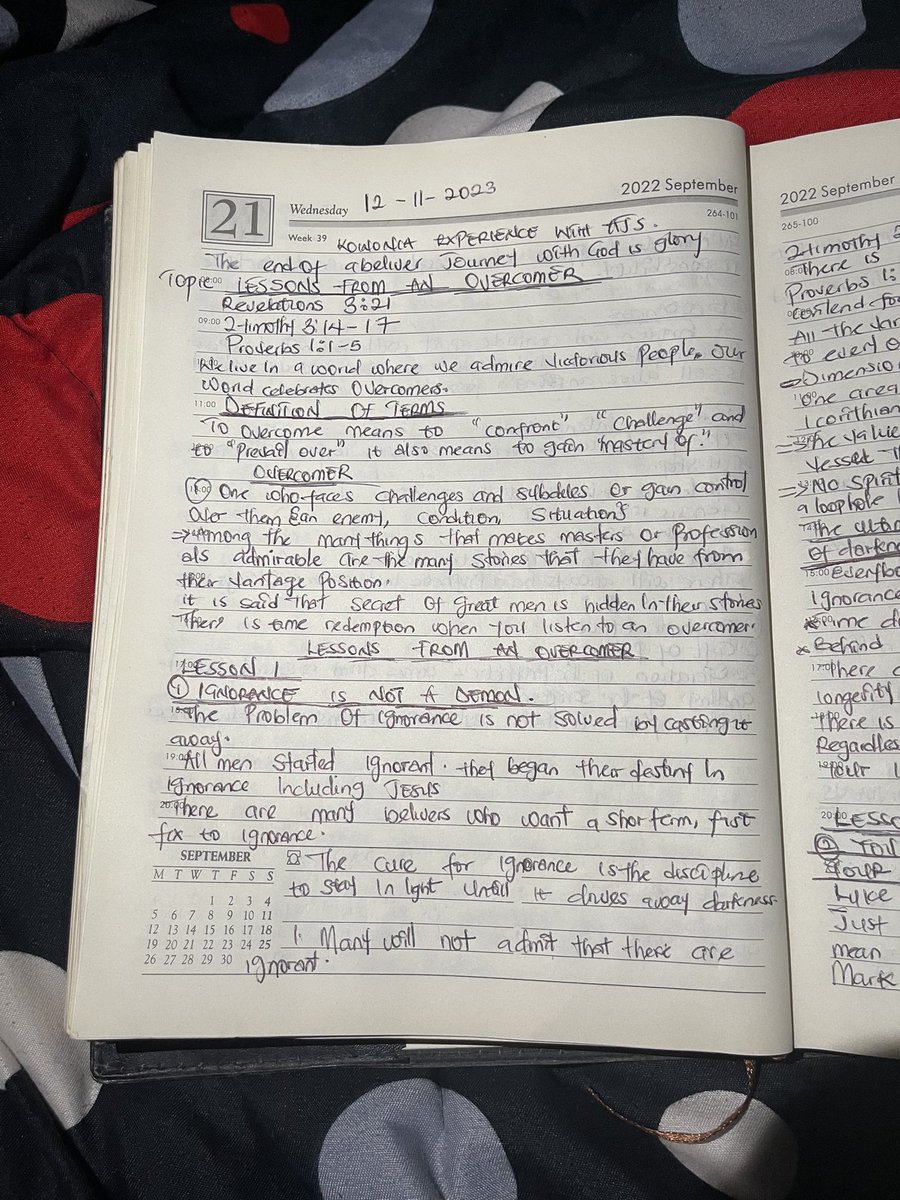 21
Wednesday
12 - 11 - 2023
2022 September
Week 39
264-101
EXPERIENCE WITH
The end of a beliver Journey with God is glory
Topic 08:00 LESSONS FROM AN OVERCOMER
Revelations 3:21
09:00 2-timothy 3:14-17
Proverbs 1:1-5
We live In a world where we admire victorious People. Our
World celebrates Overcomers.
11:00 DEFINITION OF TERMS
TO Overcome means to "confront" "challenge" and
to "Prevail over" it also means to gain "mastery of."
OVERCOMER
One who faces challenges and subdules or gain control
Over them {an enemy, condition, situation}
=> Among the many things that makes masters or Profession
als admirable are the many stories that they have from
their Vantage Position.
it is said that secret of great men is hidden In their stories
There is time redemption when you listen to an overcomer.
LESSONS FROM AN OVERCOMER
17:00 LESSON 1
① IGNORANCE IS NOT A DEMON.
The Problem Of ignorance is not solved by casting it
away.
19:00 All men started ignorant. they began their destiny In
Ignorance Including JESUS
20:00 There are many belivers who want a short term, first
fix to ignorance.
SEPTEMBER
M T W T F S S
1 2 3 4
5 6 7 8 9 10 11
12 13 14 15 16 17 18
19 20 21 22 23 24 25
26 27 28 29 30
The cure for ignorance is the discipline
to stay In light Untill it drives away darkness
1. Many will not admit that there are
ignorant.
2022 September
265-100
2-timothy
There is
Proverbs 1:
All the
to every
=> Dimension
One area
1 corithian
=> The value
Vessel
=> No Spirit
a loophole
The
of darkn
15:00
Ignorance
Behind
17:00 There
longevity
There is
Regardless
20:00 LESSO
②
Lyke
Just
mean
Mark